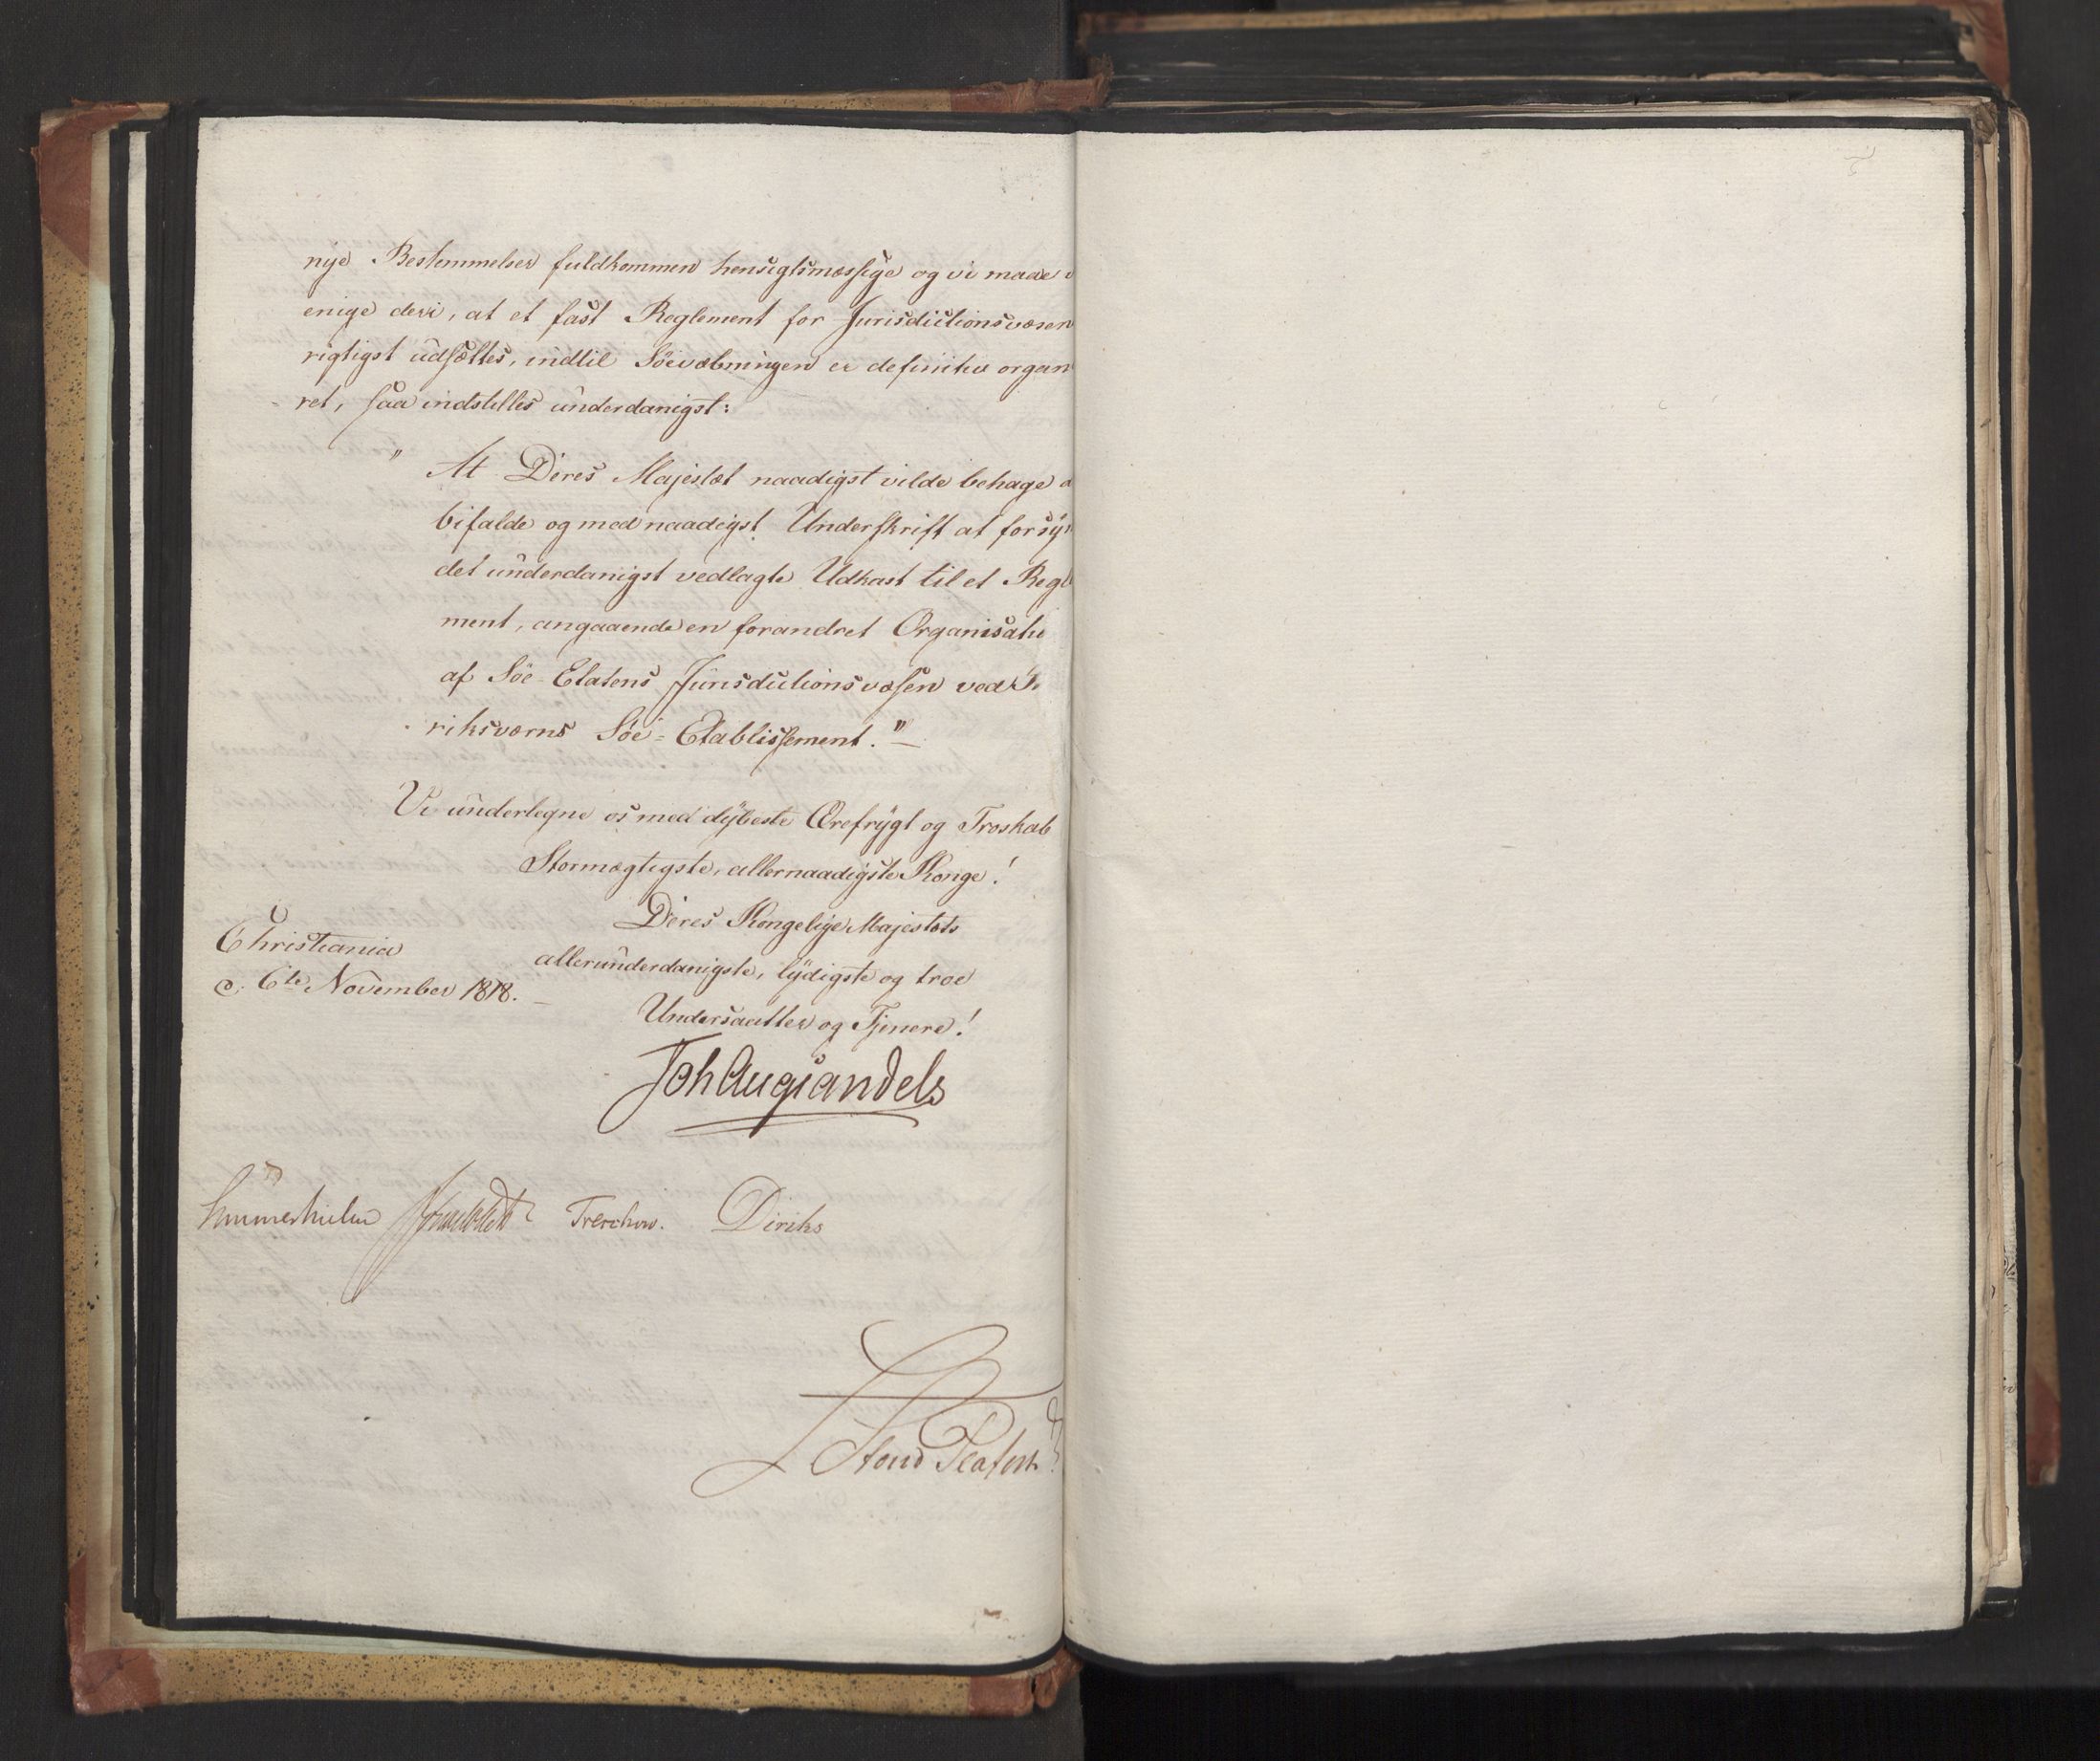 nye Bestemmelser fuldkommen hensigtsmæssige og vi maae
enige deri, at et fast Reglement for Jurisdictionsvæsen
rigtigst udsættes, indtil Söevæbningen er definitiv organ
ret, saa indstilles underdanigst:
" At Deres Majestæt naadigst vilde behage
bifalde og med naadigst Underskrift at forsy
det underdanigst vedlagte Udkast til et Regl
ment, angaaende en forandret Organisatio
af Söe-Etatens Jurisdictionsvæsen ved
riksværns Söe-Etablissement."
Vi undertegne os med dybeste Ærefrygt og Troskab
Stormægtigste, allernaadigste Konge!
Deres Kongelige Majestæts
allerunderdanigste, lydigste og troe
Undersaatter og Tjenere!
Christiania
d. 6te November 1818.
Joh Aug Sandels
Sommerhielm Treschow. Diriks